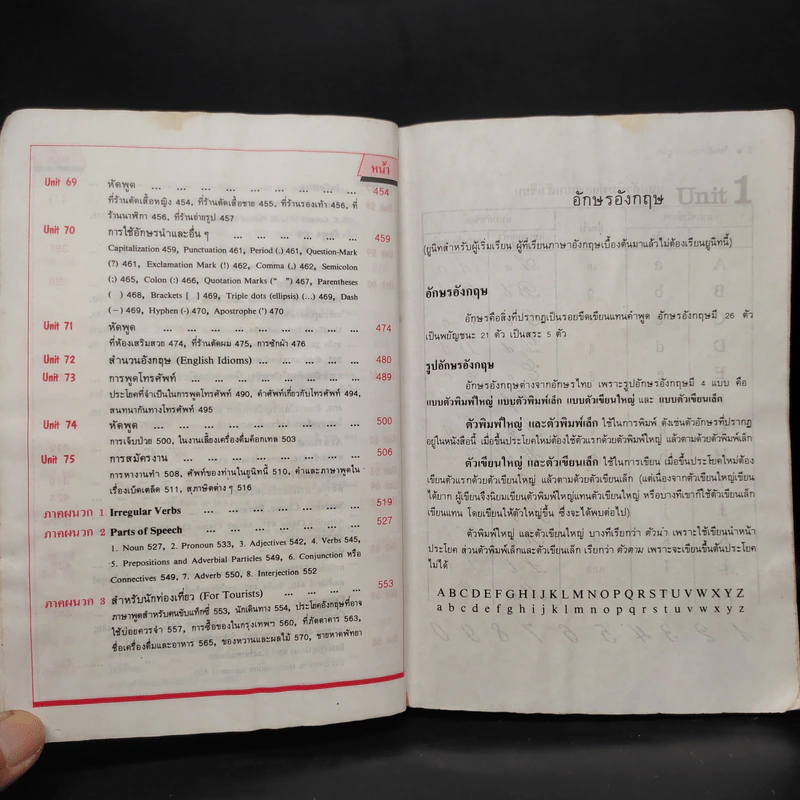 หน้า
Unit 69 หัดพูด ... ... ... ... ... ... ... ... ... 454
ที่ร้านตัดเสื้อหญิง 454, ที่ร้านตัดเสื้อชาย 455, ที่ร้านรองเท้า 456, ที่
ร้านนาฬิกา 456, ที่ร้านถ่ายรูป 457
Unit 70 การใช้อักษรนำและอื่น ๆ ... ... ... ... ... ... 459
Capitalization 459, Punctuation 461, Period (.) 461, Question-Mark
(?) 461, Exclamation Mark (!) 462, Comma (,) 462, Semicolon
(;) 465, Colon (:) 466, Quotation Marks (“ ”) 467, Parentheses
( ) 468, Brackets [ ] 469, Triple dots (ellipsis) (...) 469, Dash
(–) 469, Hyphen (-) 470, Apostrophe (') 470
Unit 71 หัดพูด ... ... ... ... ... ... ... ... 474
ที่ห้องเสริมสวย 474, ที่ร้านตัดผม 475, การซักผ้า 476
Unit 72 สำนวนอังกฤษ (English Idioms) ... ... ... ... ... 480
Unit 73 การพูดโทรศัพท์ ... ... ... ... ... ... ... 489
ประโยคที่จำเป็นในการพูดโทรศัพท์ 490, คำศัพท์เกี่ยวกับโทรศัพท์ 494,
สนทนากันทางโทรศัพท์ 495
Unit 74 หัดพูด ... ... ... ... ... ... ... ... 500
การเจ็บป่วย 500, ในงานเลี้ยงเครื่องดื่มค็อกเทล 503
Unit 75 การสมัครงาน ... ... ... ... ... ... ... 506
การหางานทำ 508, ศัพท์ของท่านในยูนิทนี้ 510, คำและภาษาพูดใน
เรื่องเบ็ดเตล็ด 511, สุภาษิตต่างๆ 516
ภาคผนวก 1 Irregular Verbs ... ... ... ... ... ... ... 519
ภาคผนวก 2 Parts of Speech ... ... ... ... ... ... 527
1. Noun 527, 2. Pronoun 533, 3. Adjectives 542, 4. Verbs 545,
5. Prepositions and Adverbial Particles 549, 6. Conjunction หรือ
Connectives 549, 7. Adverb 550, 8. Interjection 552
ภาคผนวก 3 สำหรับนักท่องเที่ยว (For Tourists) ... ... ... ... 553
ภาษาพูดสำหรับคนขับแท็กซี่ 553, นักเดินทาง 554, ประโยคอังกฤษที่อาจ
ใช้บ่อยควรจำ 557, การซื้อของในกรุงเทพฯ 560, ที่ภัตตาคาร 563,
ชื่อเครื่องดื่มและอาหาร 565, ของหวานและผลไม้ 570, ชายหาดพัทยา
อักษรอังกฤษ Unit 1
(ยูนิทสำหรับผู้เริ่มเรียน ผู้ที่เรียนภาษาอังกฤษเบื้องต้นมาแล้วไม่ต้องเรียนยูนิทนี้)
อักษรอังกฤษ
อักษรคือสิ่งที่ปรากฏเป็นรอยขีดเขียนแทนคำพูด อักษรอังกฤษมี 26 ตัว
เป็นพยัญชนะ 21 ตัว เป็นสระ 5 ตัว
รูปอักษรอังกฤษ
อักษรอังกฤษต่างจากอักษรไทย เพราะรูปอักษรอังกฤษมี 4 แบบ คือ
แบบตัวพิมพ์ใหญ่ แบบตัวพิมพ์เล็ก แบบตัวเขียนใหญ่ และ แบบตัวเขียนเล็ก
ตัวพิมพ์ใหญ่ และตัวพิมพ์เล็ก ใช้ในการพิมพ์ ดังเช่นตัวอักษรที่ปรากฏ
อยู่ในหนังสือนี้ เมื่อขึ้นประโยคใหม่ต้องใช้ตัวแรกด้วยตัวพิมพ์ใหญ่ แล้วตามด้วยตัวพิมพ์เล็ก
ตัวเขียนใหญ่ และตัวเขียนเล็ก ใช้ในการเขียน เมื่อขึ้นประโยคใหม่ต้อง
เขียนตัวแรกด้วยตัวเขียนใหญ่ แล้วตามด้วยตัวเขียนเล็ก (แต่เนื่องจากตัวเขียนใหญ่เขียน
ได้ยาก ผู้เขียนจึงนิยมเขียนตัวพิมพ์ใหญ่แทนตัวเขียนใหญ่ หรือบางทีเขาก็ใช้ตัวเขียนเล็ก
เขียนแทน โดยเขียนให้ตัวใหญ่ขึ้น ซึ่งจะได้พบต่อไป)
ตัวพิมพ์ใหญ่ และตัวเขียนใหญ่ บางทีเรียกว่า ตัวนำ เพราะใช้เขียนนำหน้า
ประโยค ส่วนตัวพิมพ์เล็กและตัวเขียนเล็ก เรียกว่า ตัวตาม เพราะจะเขียนขึ้นต้นประโยค
ไม่ได้
A B C D E F G H I J K L M N O P Q R S T U V W X Y Z
a b c d e f g h i j k l m n o p q r s t u v w x y z